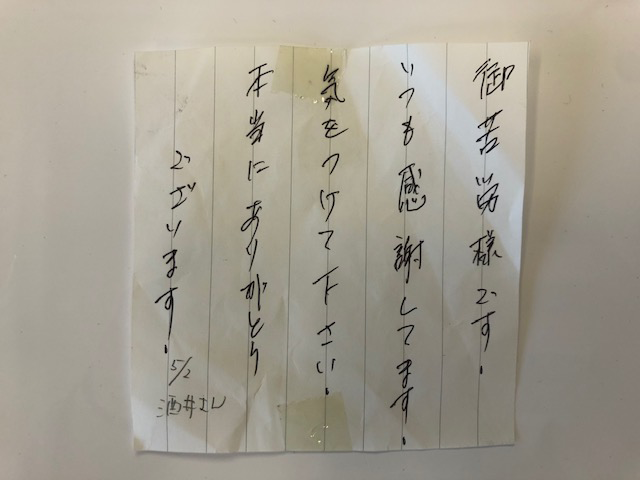 御苦労様です.
いつも感謝してます.
気をつけて下さい.
本当にありがとう
ございます.
5/2
酒井さん